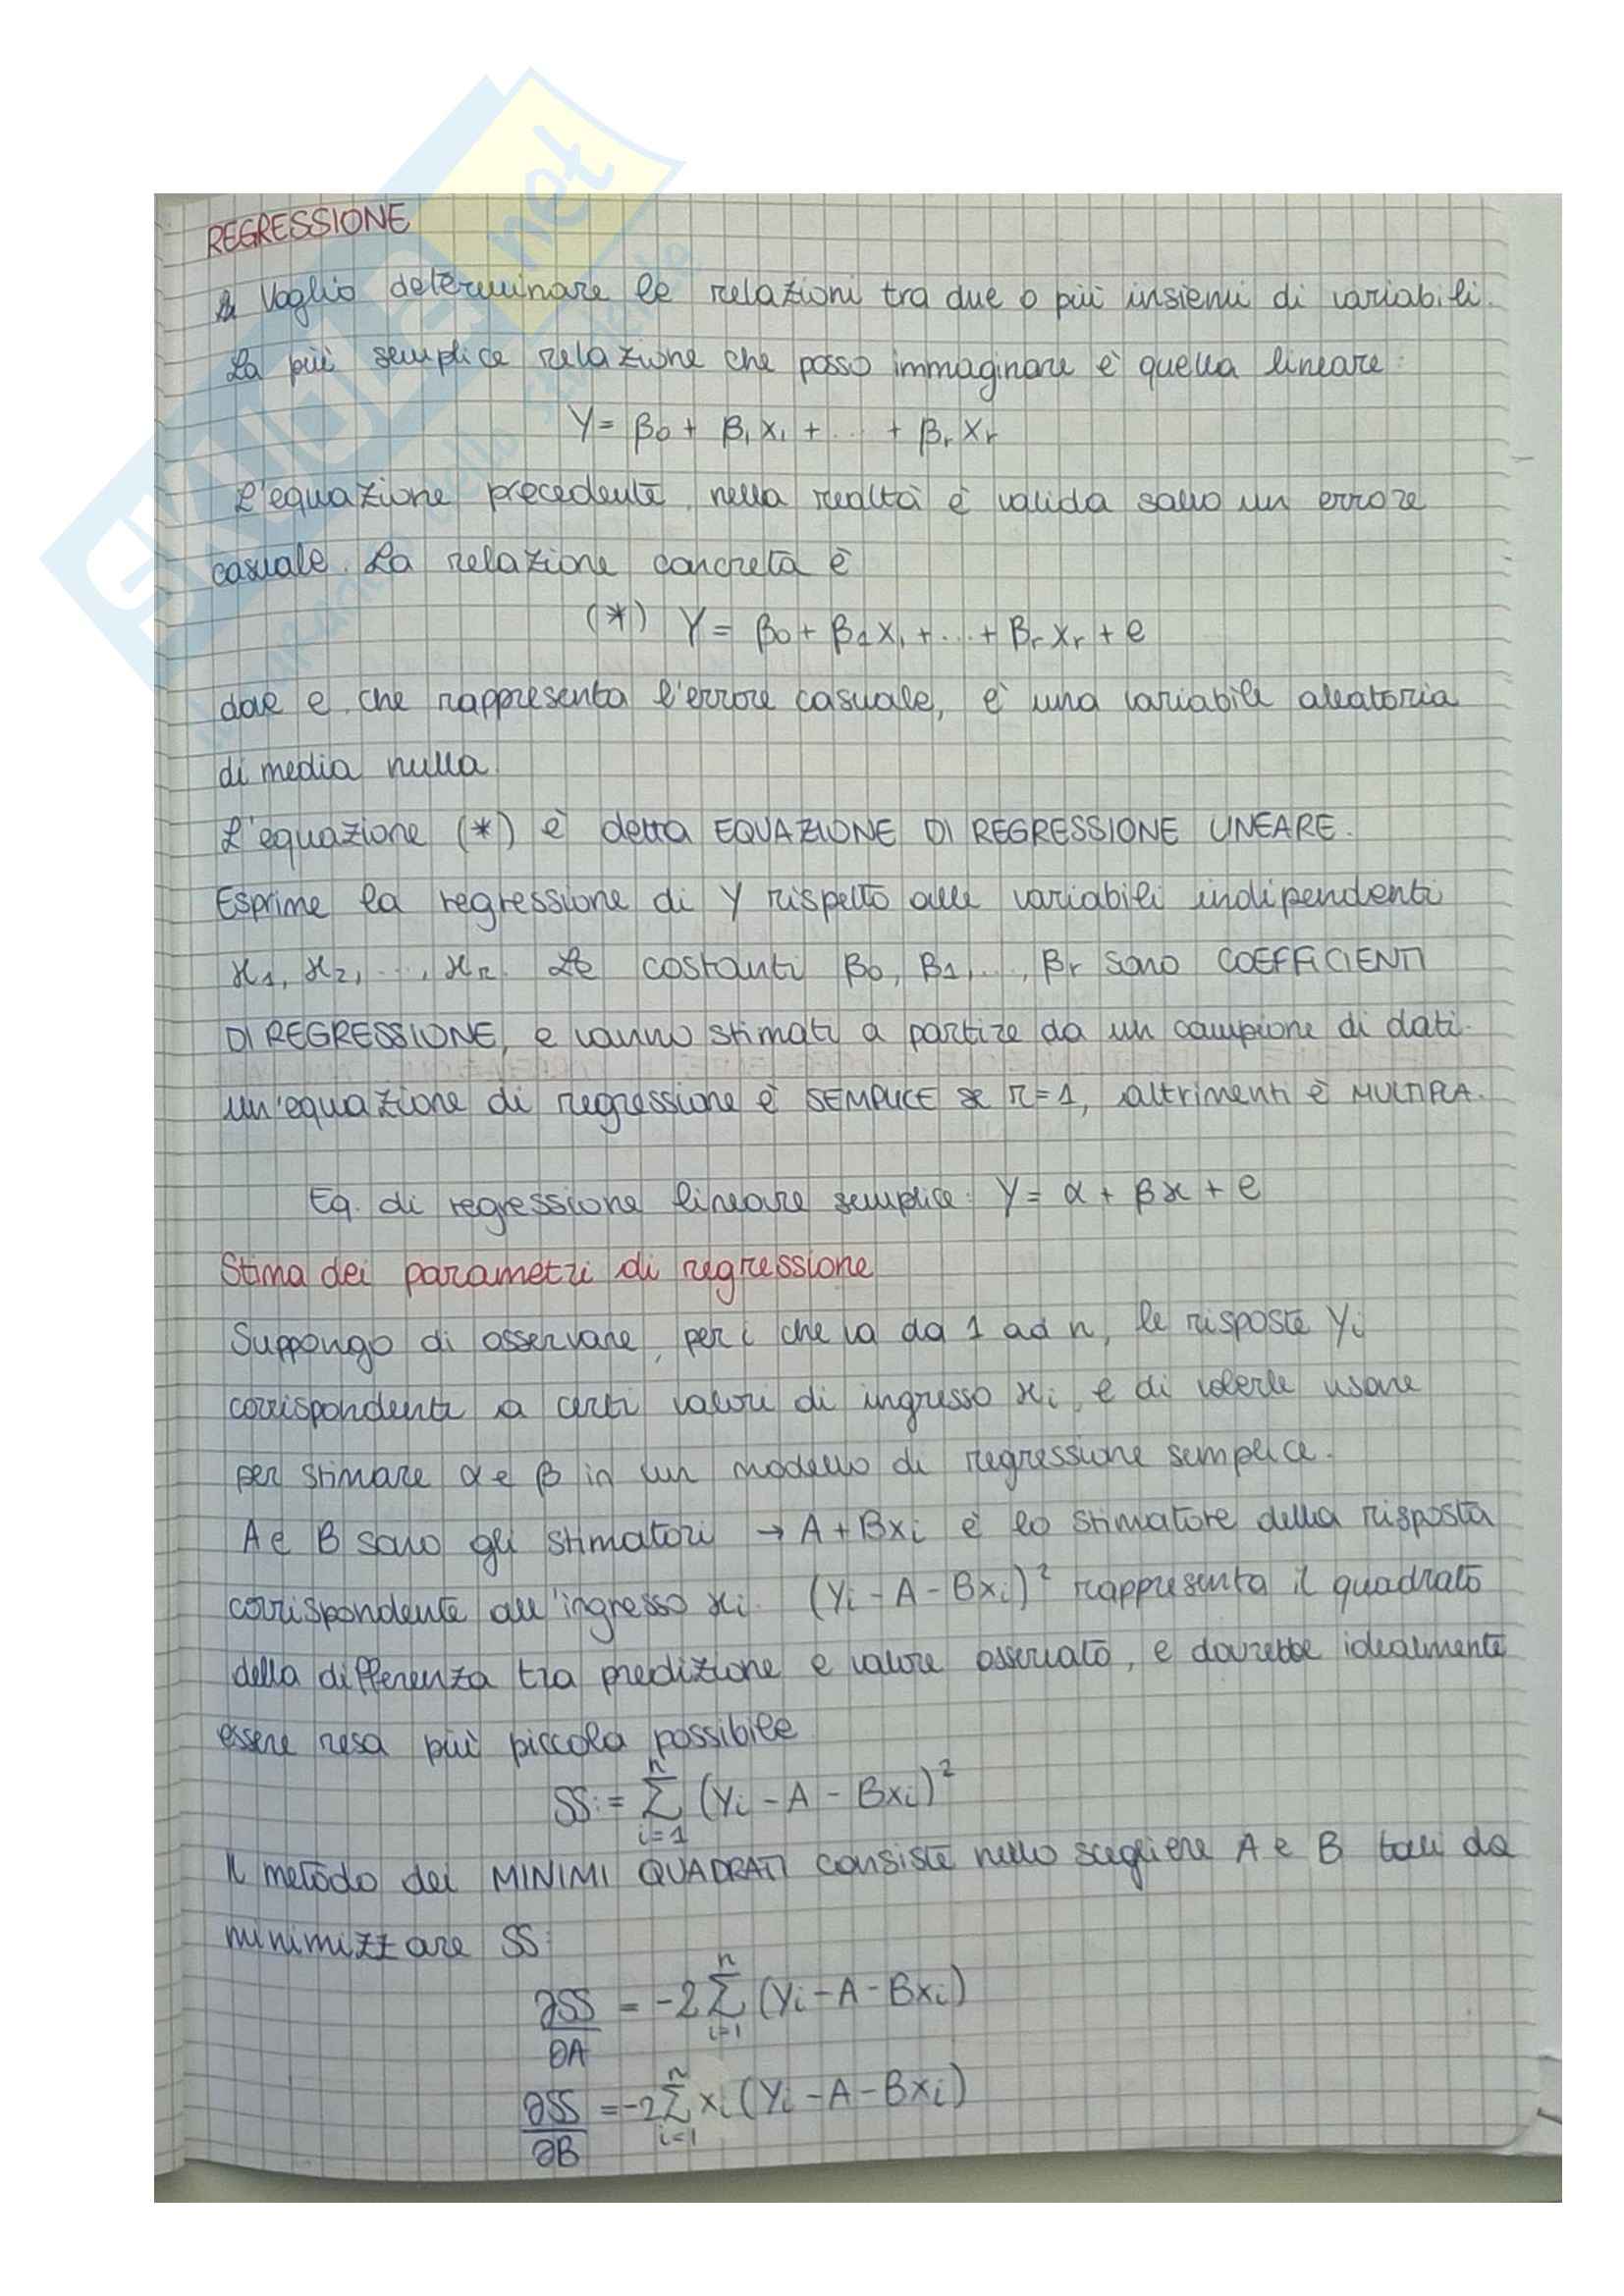 REGRESSIONE
Voglio determinare le relazioni tra due o più insiemi di variabili.
La più semplice relazione che posso immaginare è quella lineare:
Y = β0 + β1 x1 + ... + βr xr
L'equazione precedente, nella realtà è valida salvo un errore
casuale. La relazione concreta è
(*) Y = β0 + β1 x1 + ... + βr xr + e
dove e, che rappresenta l'errore casuale, è una variabile aleatoria
di media nulla.
L'equazione (*) è detta EQUAZIONE DI REGRESSIONE LINEARE.
Esprime la regressione di Y rispetto alle variabili indipendenti
x1, x2, ..., xr. Le costanti β0, β1, ..., βr sono COEFFICIENTI
DI REGRESSIONE, e vanno stimati a partire da un campione di dati.
Un'equazione di regressione è SEMPLICE se r=1, altrimenti è MULTIPLA.
Eq. di regressione lineare semplice: Y = α + βx + e
Stima dei parametri di regressione
Suppongo di osservare, per i che va da 1 ad n, le risposte Yi
corrispondenti a certi valori di ingresso xi, e di volerle usare
per stimare α e β in un modello di regressione semplice.
A e B sono gli stimatori → A + Bxi è lo stimatore della risposta
corrispondente all'ingresso xi. (Yi - A - Bxi)² rappresenta il quadrato
della differenza tra predizione e valore osservato, e dovrebbe idealmente
essere resa più piccola possibile
SS := n Σ i=1 (Yi - A - Bxi)²
Il metodo dei MINIMI QUADRATI consiste nello scegliere A e B tali da
minimizzare SS:
∂SS/∂A = -2 n Σ i=1 (Yi - A - Bxi)
∂SS/∂B = -2 n Σ i=1 xi (Yi - A - Bxi)
SKUOLA.net